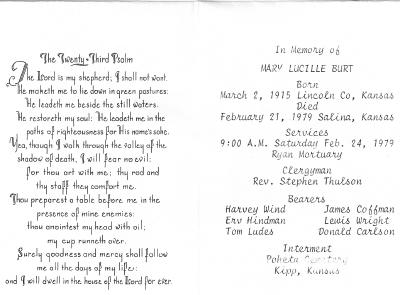 The Twenty-Third Psalm
The Lord is my shepherd; I shall not want.
He maketh me to lie down in green pastures:
He leadeth me beside the still waters.
He restoreth my soul: He leadeth me in the
paths of righteousness for His name's sake.
Yea, though I walk through the valley of the
shadow of death, I will fear no evil:
for thou art with me; thy rod and
thy staff they comfort me.
Thou preparest a table before me in the
presence of mine enemies:
thou anointest my head with oil;
my cup runneth over.
Surely goodness and mercy shall follow
me all the days of my life:
and I will dwell in the house of the Lord for ever.
In Memory of
MARY LUCILLE BURT
Born
March 2, 1915 Lincoln Co, Kansas
Died
February 21, 1979 Salina, Kansas
Services
9:00 A.M. Saturday Feb. 24, 1979
Ryan Mortuary
Clergyman
Rev. Stephen Thulson
Bearers
Harvey Wind James Coffman
Erv Hindman Lewis Wright
Tom Ludes Donald Carlson
Interment
Poheta Cemetery
Kipp, Kansas